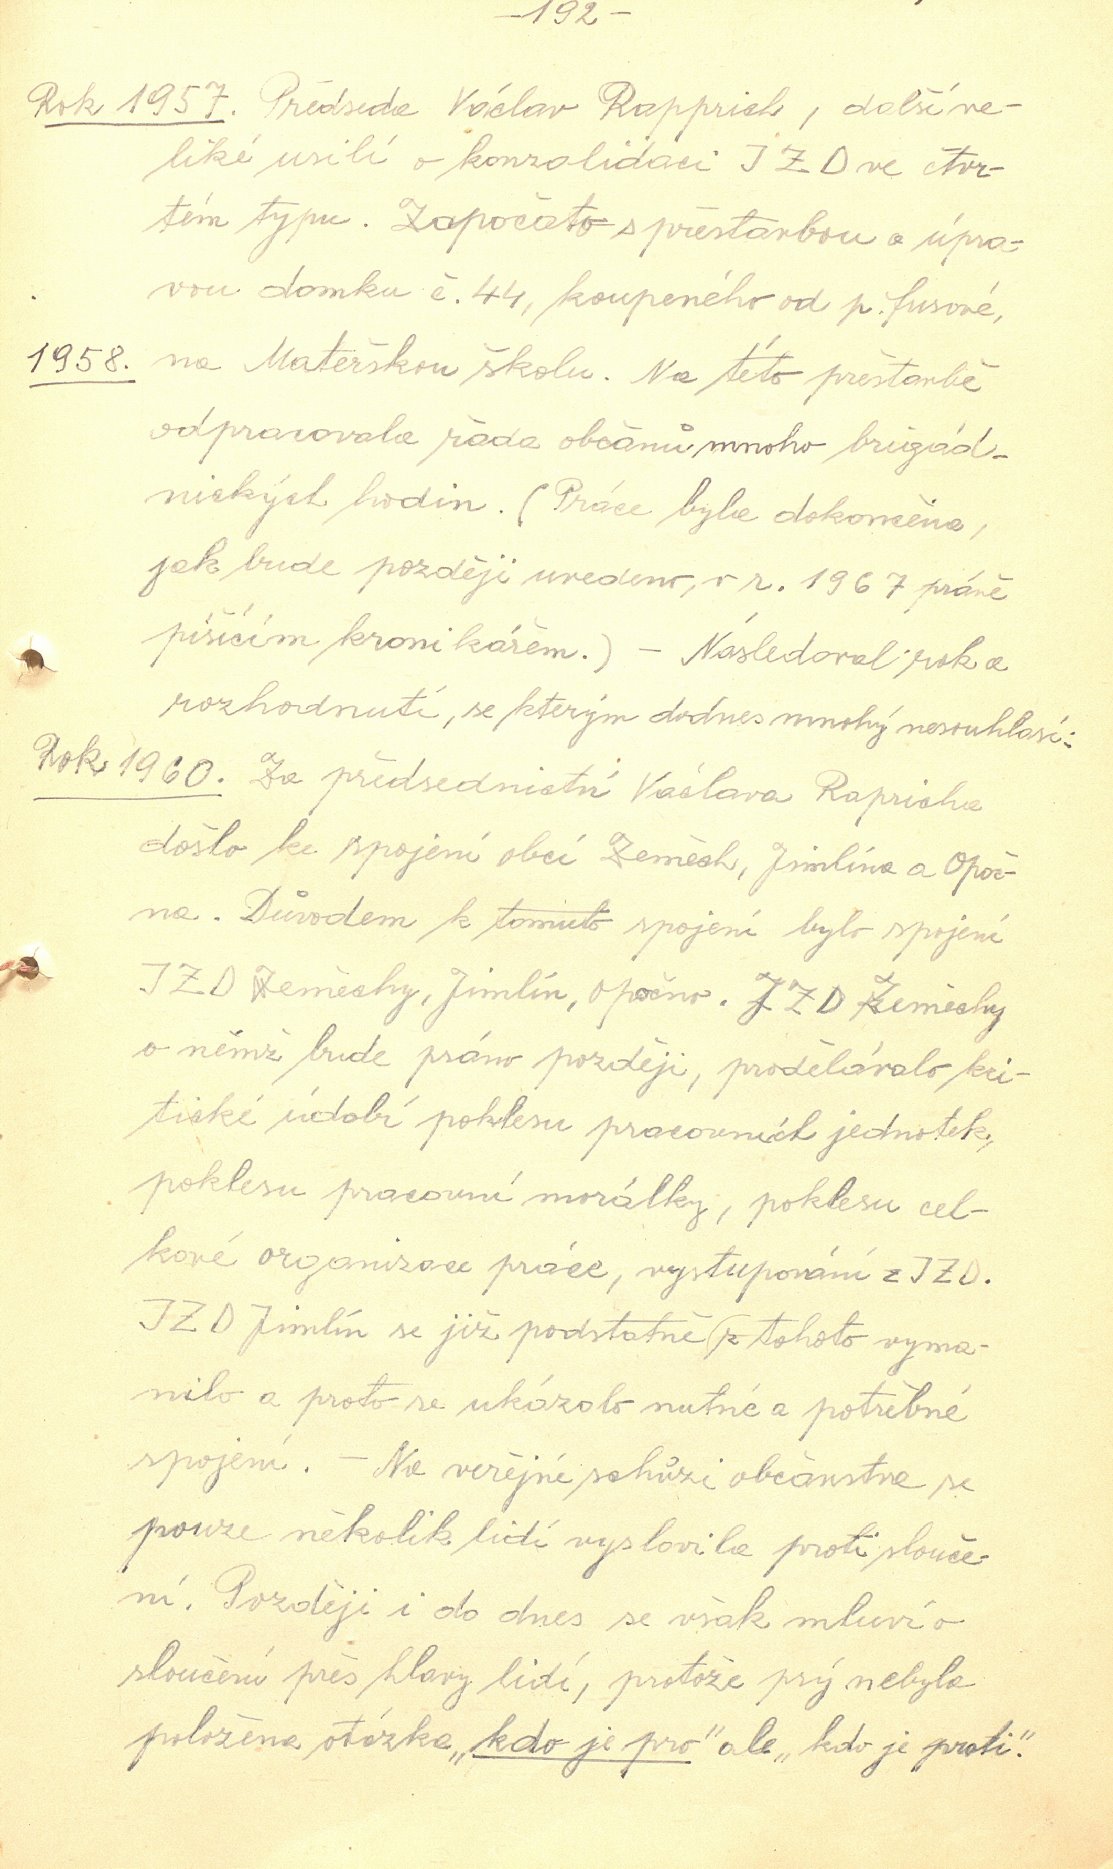 -192-
Rok 1957. Předseda Václav Rapprich, další ve-
liké usilí o konzalidaci JZD ve čtvr-
tém typu. Započato s přestavbou a úpra-
vou domku č. 44, koupeného od p. fusové,
1958. na Mateřskou školu. Na této přestavbě
odpracovala řada občanů mnoho brigád-
nických hodin. (Práce byla dokončena,
jak bude později uvedeno, v r. 1967 právě
píšícím kronikářem.) - Následoval rok a
rozhodnutí, se kterým dodnes mnohý nesouhlasí:
Rok 1960. Za předsednictví Václava Rapricha
došlo ke spojení obcí Zeměch, Jimlína a Opoč-
na. Důvodem k tomuto spojení bylo spojení
JZD Zeměchy, Jimlín, Opočno. JZD Zeměchy
o němž bude psáno později, prodělávalo kri-
tické údobí poklesu pracovních jednotek,
poklesu pracovní morálky, poklesu cel-
kové organizace práce, vystupování z JZD.
JZD Jimlín se již podstatně z tohoto vyma-
nilo a proto se ukázalo nutné a potřebné
spojení. - Na veřejné schůzi občanstva se
pouze několik lidí vyslovila proti slouče-
ní. Později i do dnes se však mluví o
sloučení přes hlavy lidí, protože prý nebyla
položena otázka „kdo je pro" ale „kdo je proti".